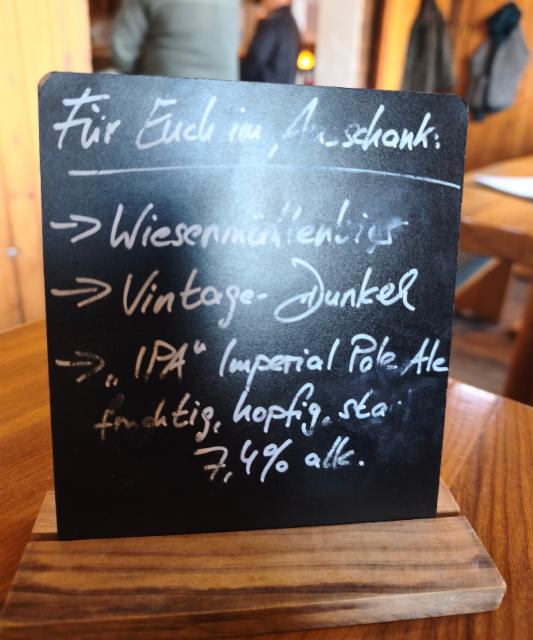 Für Euch im Ausschank:
→ Wiesenmühlenbier
→ Vintage-Dunkel
→ „IPA“ Imperial Pale Ale
fruchtig, hopfig,
7,4% alk.